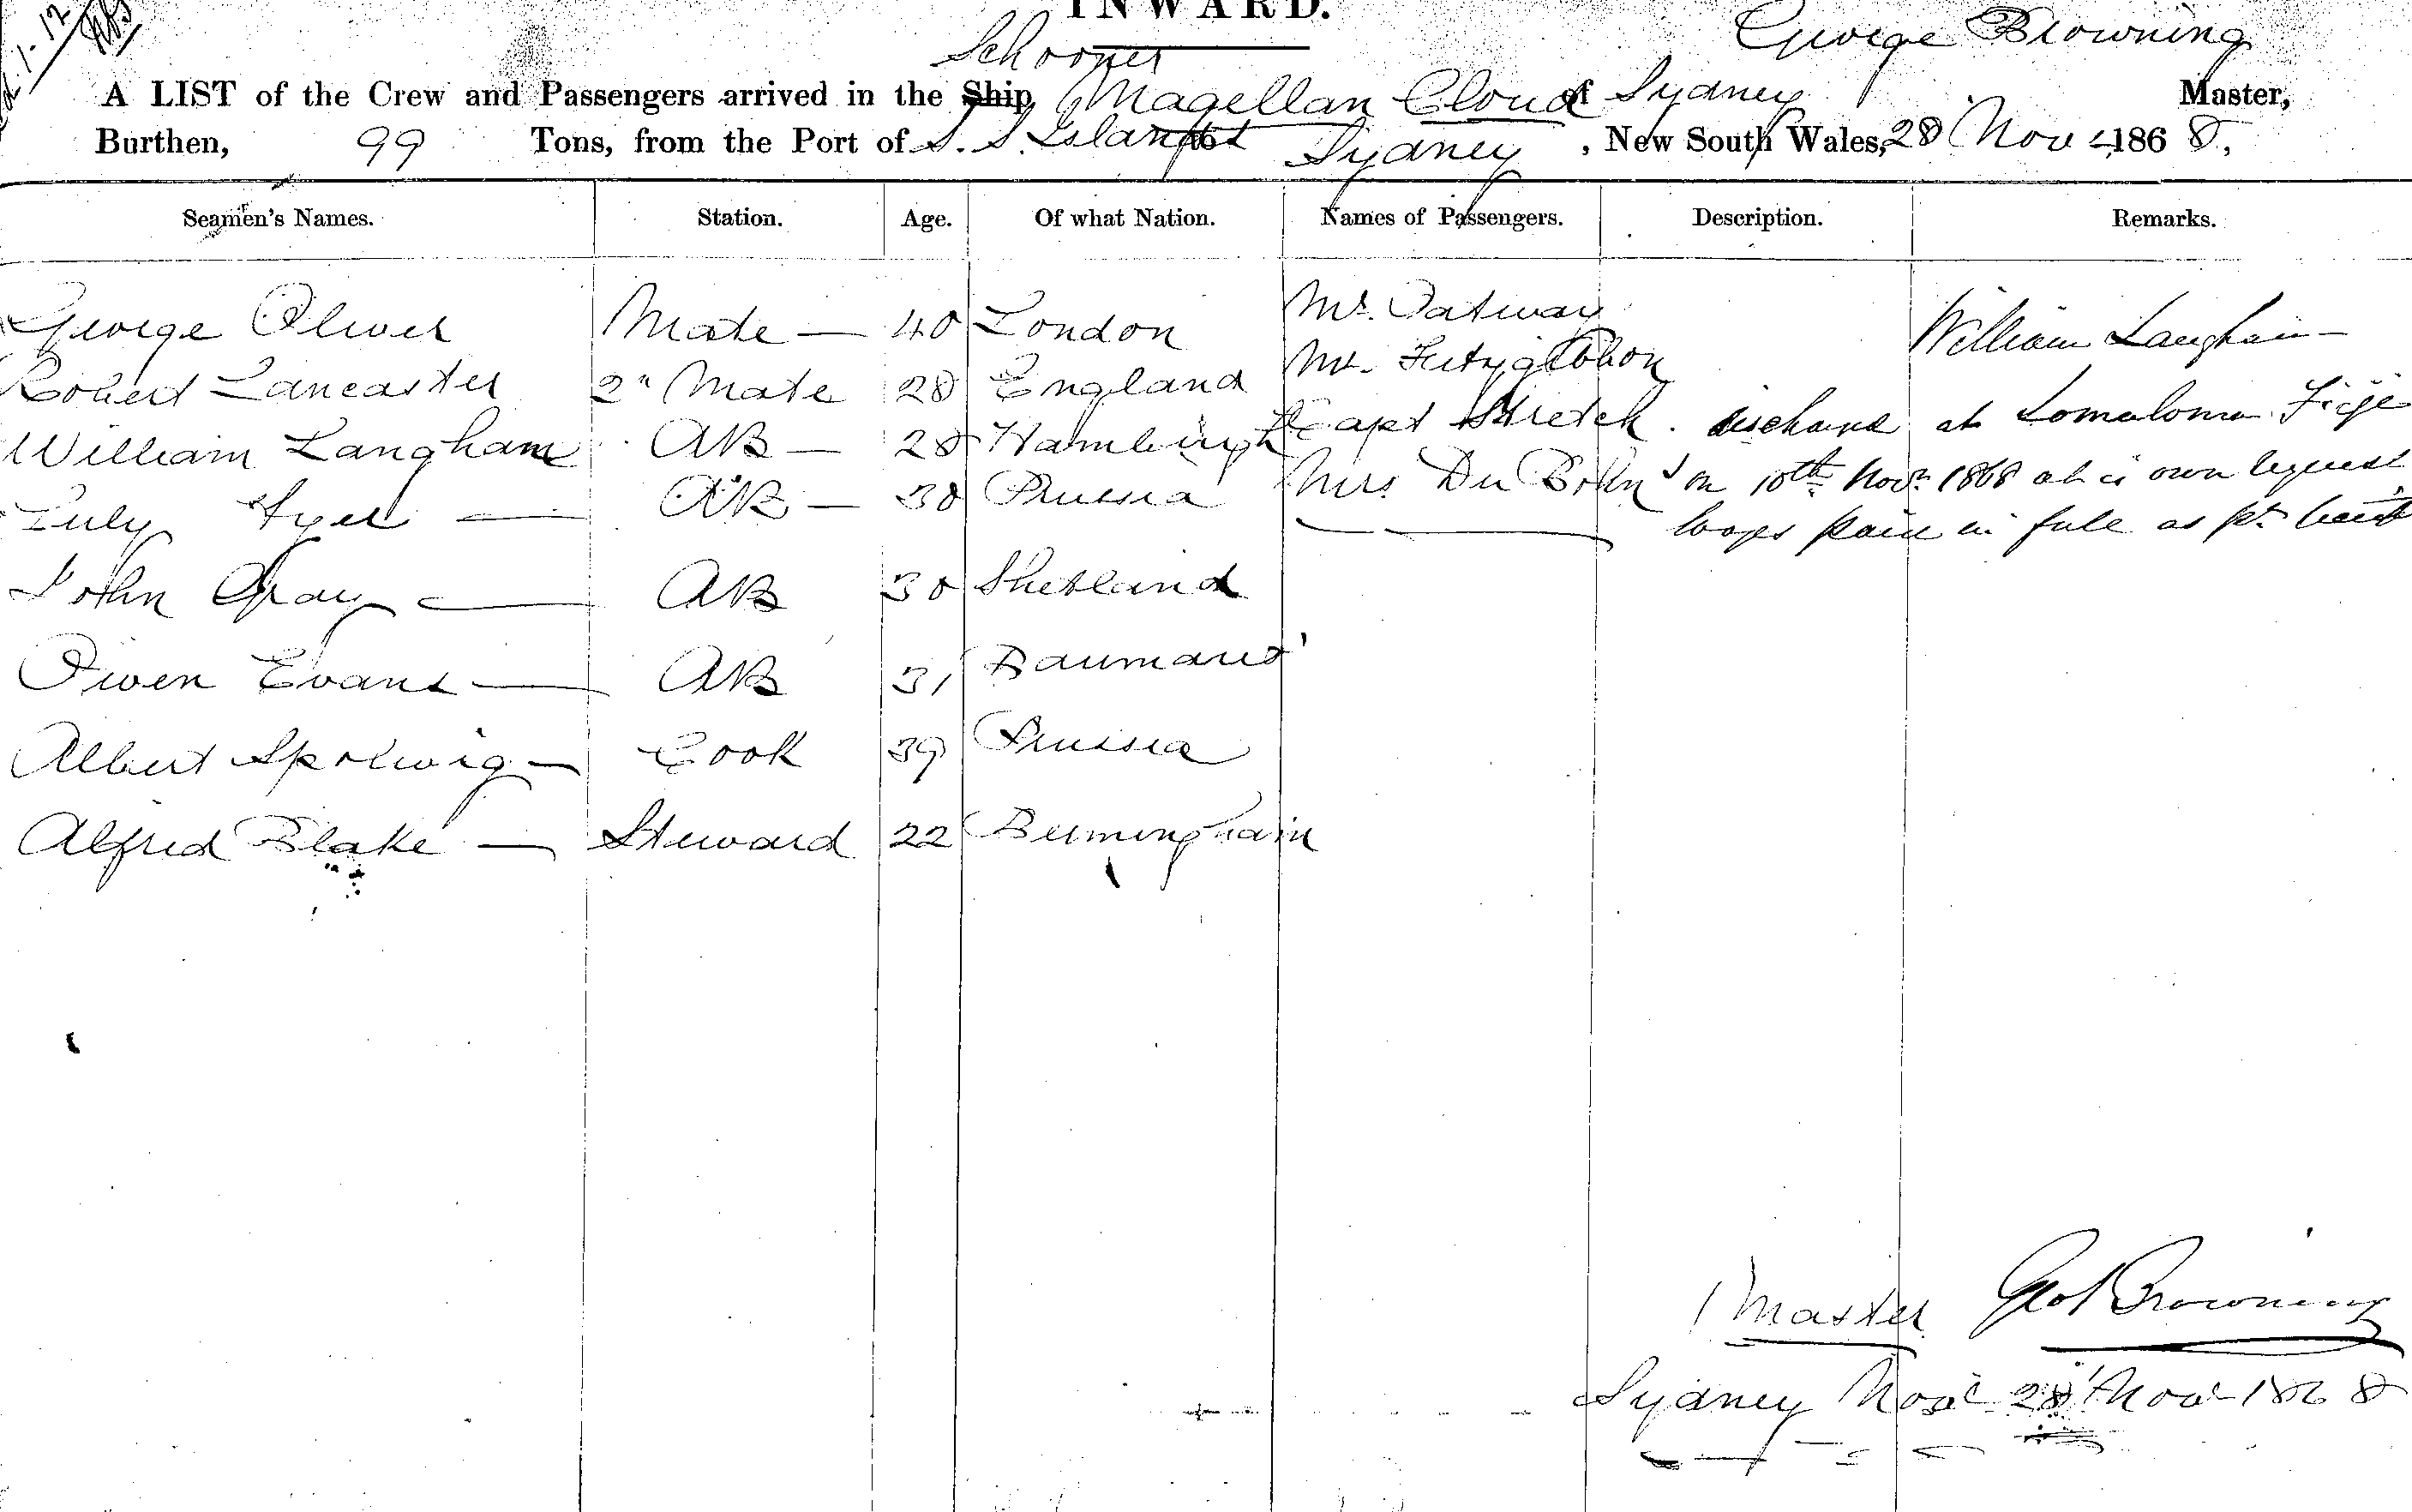 INWARD.
Schooner George Browning
A LIST of the Crew and Passengers arrived in the Ship Magellan Cloud of Sydney Master,
Burthen, 99 Tons, from the Port of S. S. Islands to Sydney, New South Wales, 28 Nov 1868,
Seamen's Names. Station. Age. Of what Nation. Names of Passengers. Description. Remarks.
George Oliver Mate — 40 London Mr. Oatway William Langham
Robert Lancaster 2" Mate 28 England Mr. Fitzgibbon
William Langham AB — 28 Hamburgh Capt Stretch discharged at Lomaloma Fiji
Ayer — AB — 30 Prussia Mrs Du on 10th Novr 1868 at is own request
wages paid in full as pr
John Gray — AB 30 Shetland
Owen Evans — AB 31
Albert — Cook 39 Prussia
Alfred Blake — Steward 22 Birmingham
Master Geo Browning
Sydney 28 Nov 1868